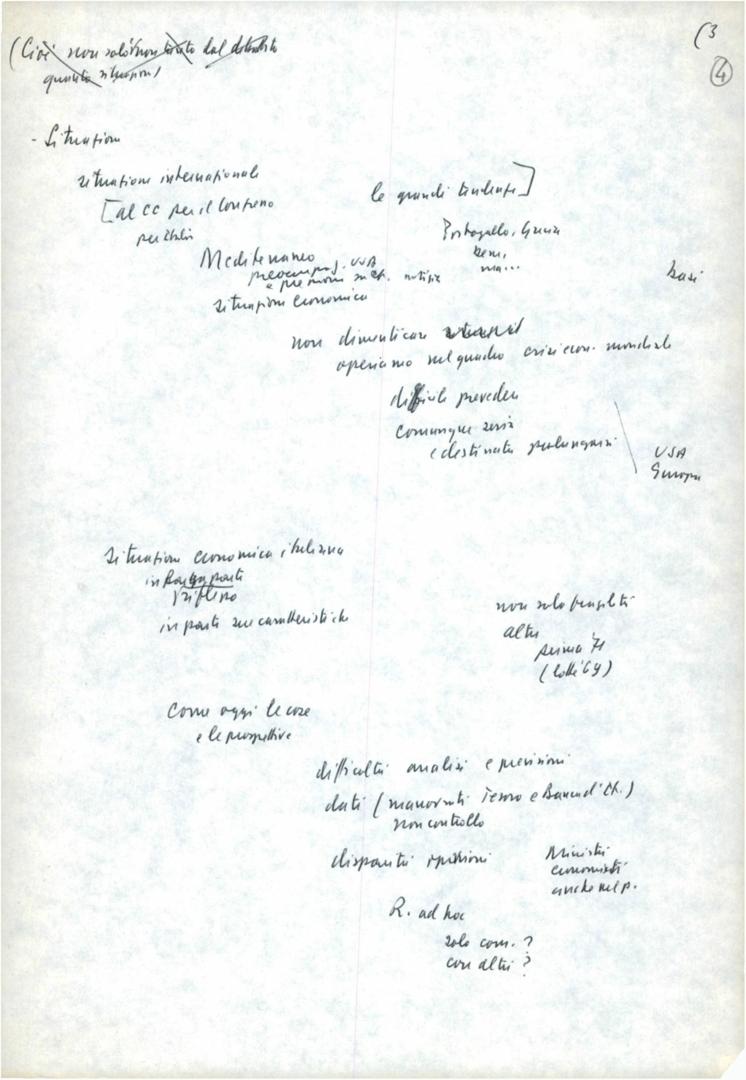 (3
④
(Cioè non solo non tanto dal
- Situazione
situazione internazionale
[al CC per il Congresso
le grandi tendenze]
per Italia
Portogallo, Grecia
bene,
ma...
Mediterraneo
preoccupaz. USA
e pressioni notizie
basi
situazione economica
non dimenticare
operiamo nel quadro crisi econ. mondiale
difficile prevedere
comunque seria
e destinata prolungarsi
USA
Europa
situazione economica italiana
in parte
riflesso
in parte sue caratteristiche
non solo fragilità
altre
prima '71
(lotte 69)
Come oggi le cose
e le prospettive
difficoltà analisi e previsioni
dati (manovrati Tesoro e Banca d'It.)
non controllo
disparità opinioni
Ministri
economisti
anche nel p.
R. ad hoc
solo com. ?
con altri ?